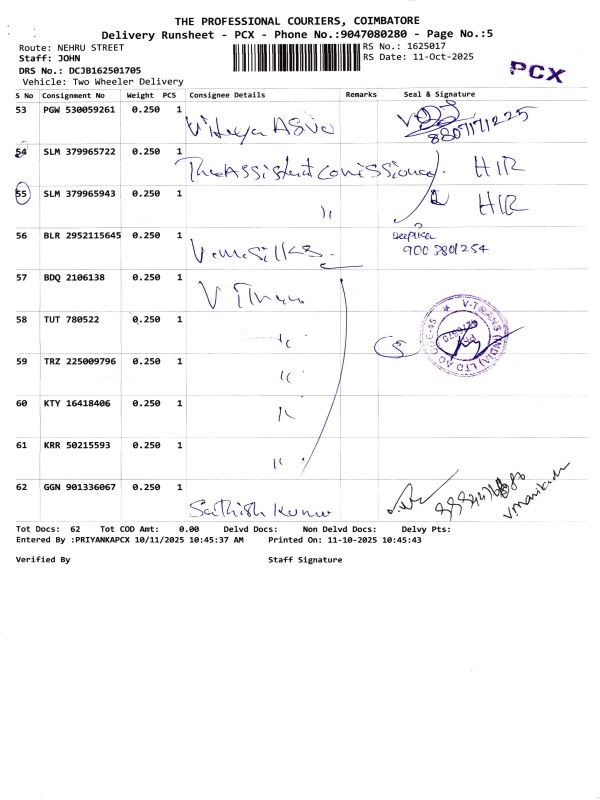 THE PROFESSIONAL COURIERS, COIMBATORE
Delivery Runsheet - PCX - Phone No.:9047080280 - Page No.:5
Route: NEHRU STREET
RS No.: 1625017
Staff: JOHN
RS Date: 11-Oct-2025
PCX
DRS No.: DCJB162501705
Vehicle: Two Wheeler Delivery
S No Consignment No Weight PCS Consignee Details Remarks Seal & Signature
53 PGW 530059261 0.250 1
8807171225
54 SLM 379965722 0.250 1 The Assistant Comissioner. HIR
55 SLM 379965943 0.250 1 " HIR
56 BLR 2952115645 0.250 1 V.m.Silks. Deepika
900 3801254
57 BDQ 2106138 0.250 1 V Trans
58 TUT 780522 0.250 1 " 5
V-TRANS (INDIA) LTD
59 TRZ 225009796 0.250 1 "
60 KTY 16418406 0.250 1 "
61 KRR 50215593 0.250 1 "
62 GGN 901336067 0.250 1 Sathish Kumar
Tot Docs: 62 Tot COD Amt: 0.00 Delvd Docs: Non Delvd Docs: Delvy Pts:
Entered By :PRIYANKAPCX 10/11/2025 10:45:37 AM Printed On: 11-10-2025 10:45:43
Verified By Staff Signature